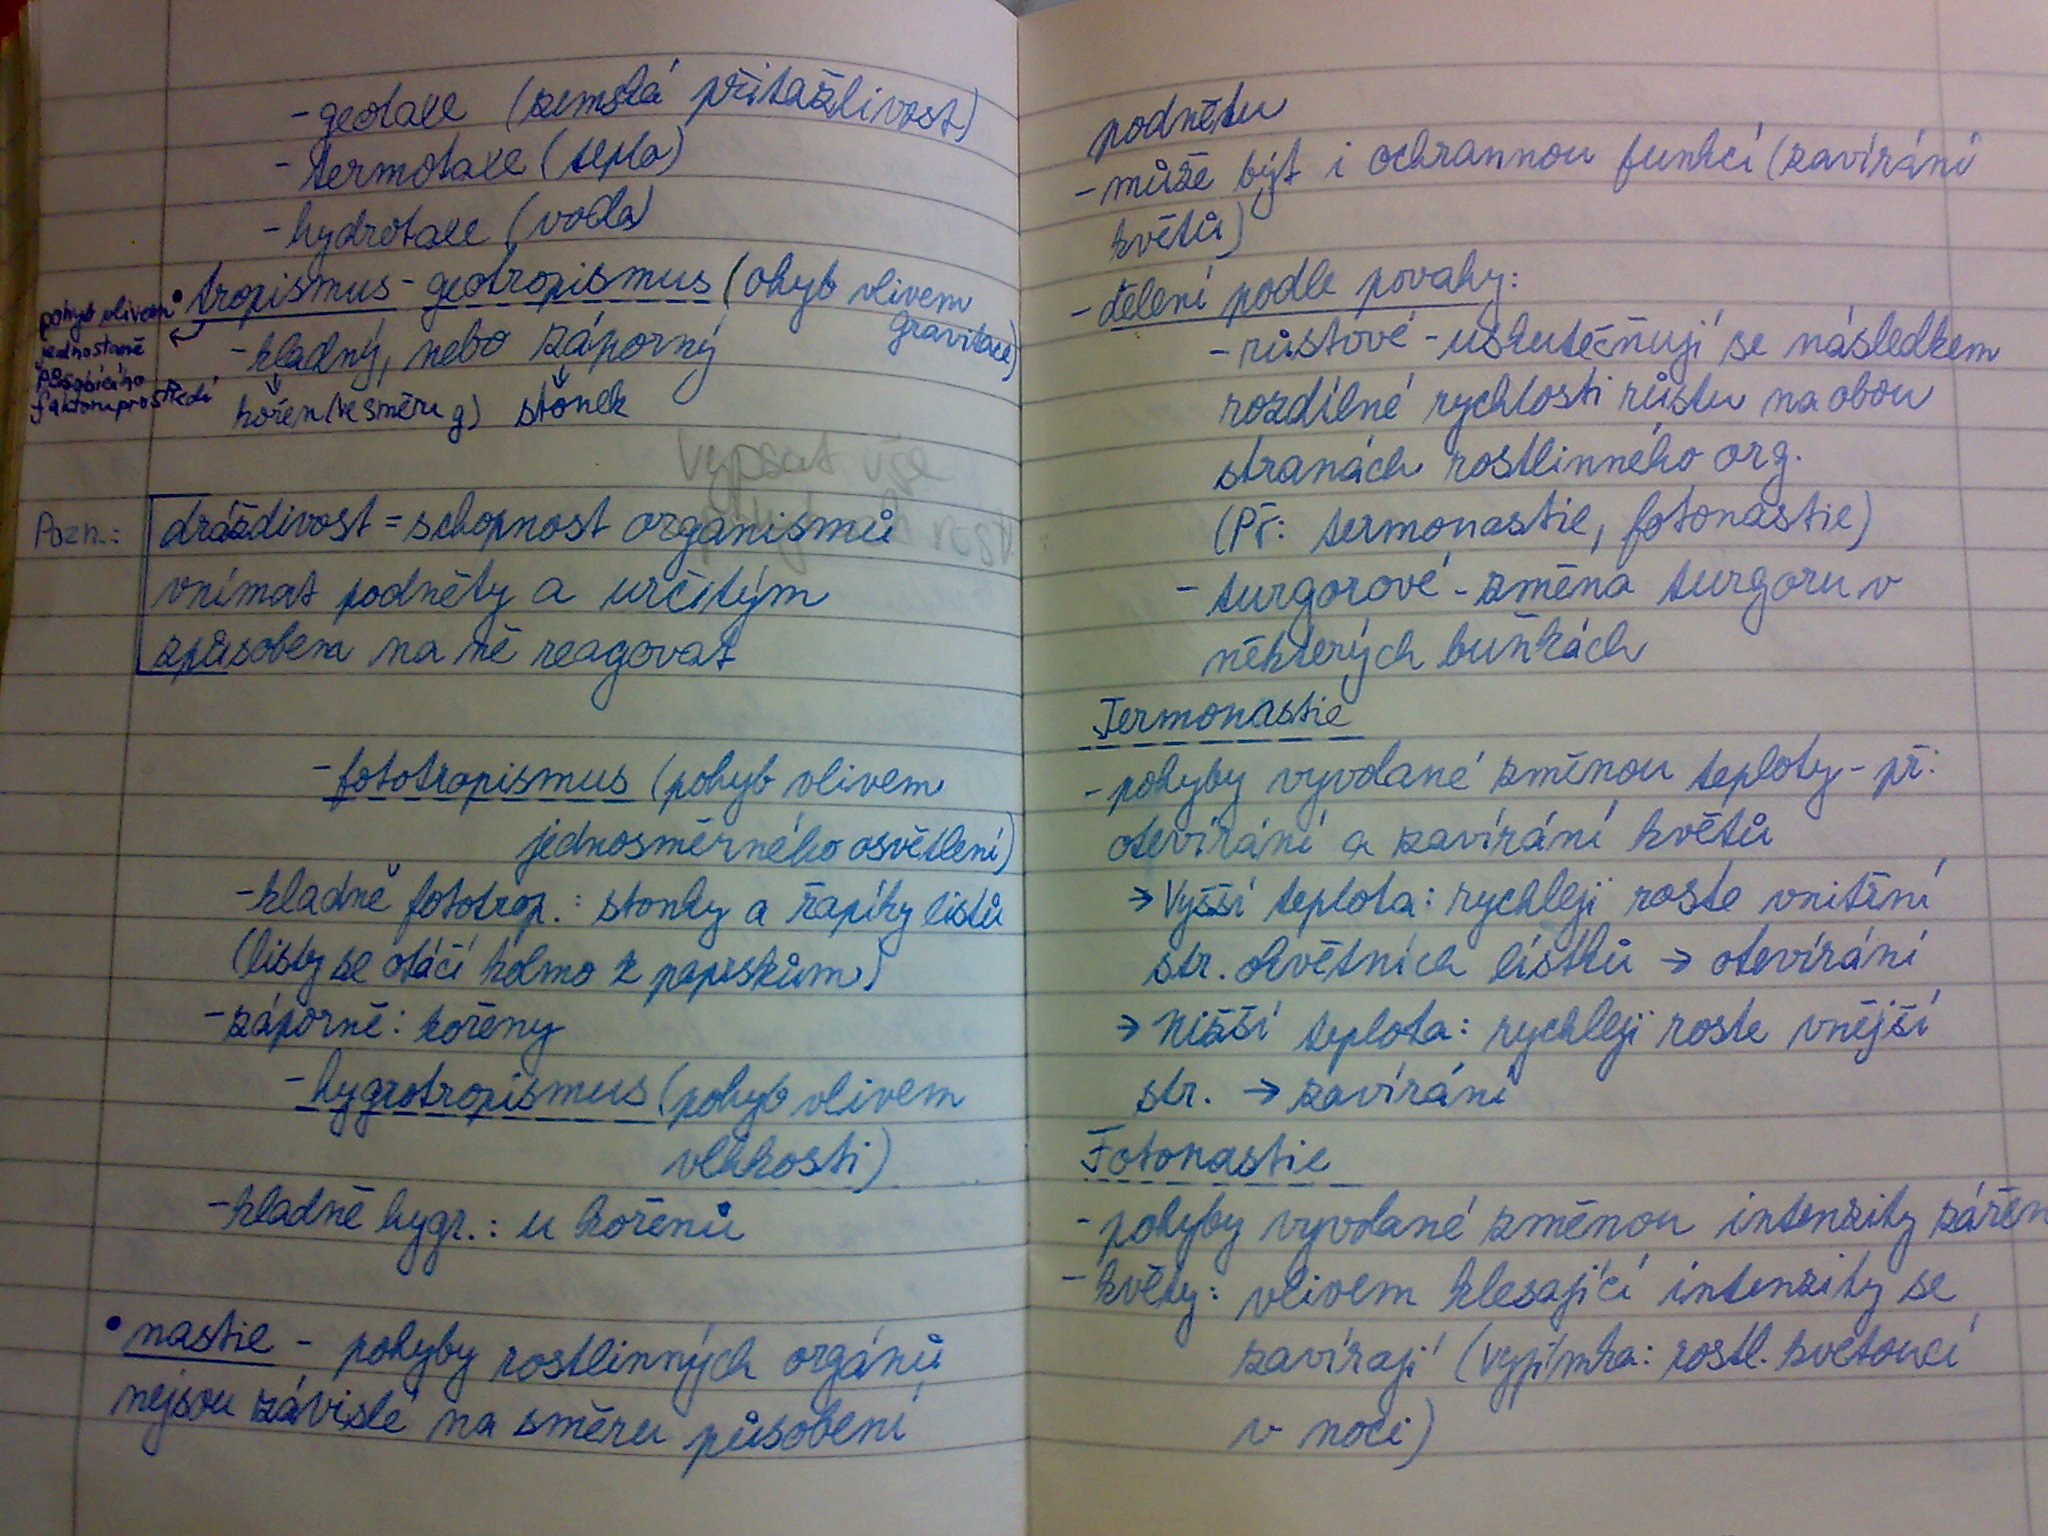 - geotaxe (zemská přitažlivost)
- termotaxe (tepla)
- hydrotaxe (voda)
• tropismus - geotropismus (ohyb vlivem
gravitace)
pohyb vlivem
jednostraně
působícího
faktoru prostředí
- kladný, nebo záporný
kořen (ve směru g) stonek
vypsat vše
Pozn.: dráždivost = schopnost organismů
vnímat podněty a určitým
způsobem na ně reagovat
- fototropismus (pohyb vlivem
jednosměrného osvětlení)
- kladně fototrop.: stonky a řapíky listů
(listy se otáčí kolmo k paprskům)
- záporně: kořeny
- hygrotropismus (pohyb vlivem
vlhkosti)
- kladně hygr.: u kořenů
• nastie - pohyby rostlinných orgánů
nejsou závislé na směru působení
podnětu
- může být i ochrannou funkcí (zavírání
květů)
- dělení podle povahy:
- růstové - uskutečňují se následkem
rozdílné rychlosti růstu na obou
stranách rostlinného org.
(Př: termonastie, fotonastie)
- turgorové - změna turgoru v
některých buňkách
Termonastie
- pohyby vyvolané změnou teploty - př:
otevírání a zavírání květů
→ Vyšší teplota: rychleji roste vnitřní
str. okvětních lístků → otevírání
→ Nižší teplota: rychleji roste vnější
str. → zavírání
Fotonastie
- pohyby vyvolané změnou intenzity zářen
- květy: vlivem klesající intenzity se
zavírají (vyjímka: rostl. kvetoucí
v noci)